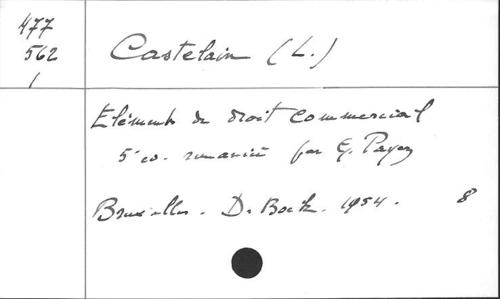 477
562
1
Castelain (L.)
Eléments de droit commercial
5e éd. remaniée par G. Payen
Bruxelles. De Boeck. 1954. 8